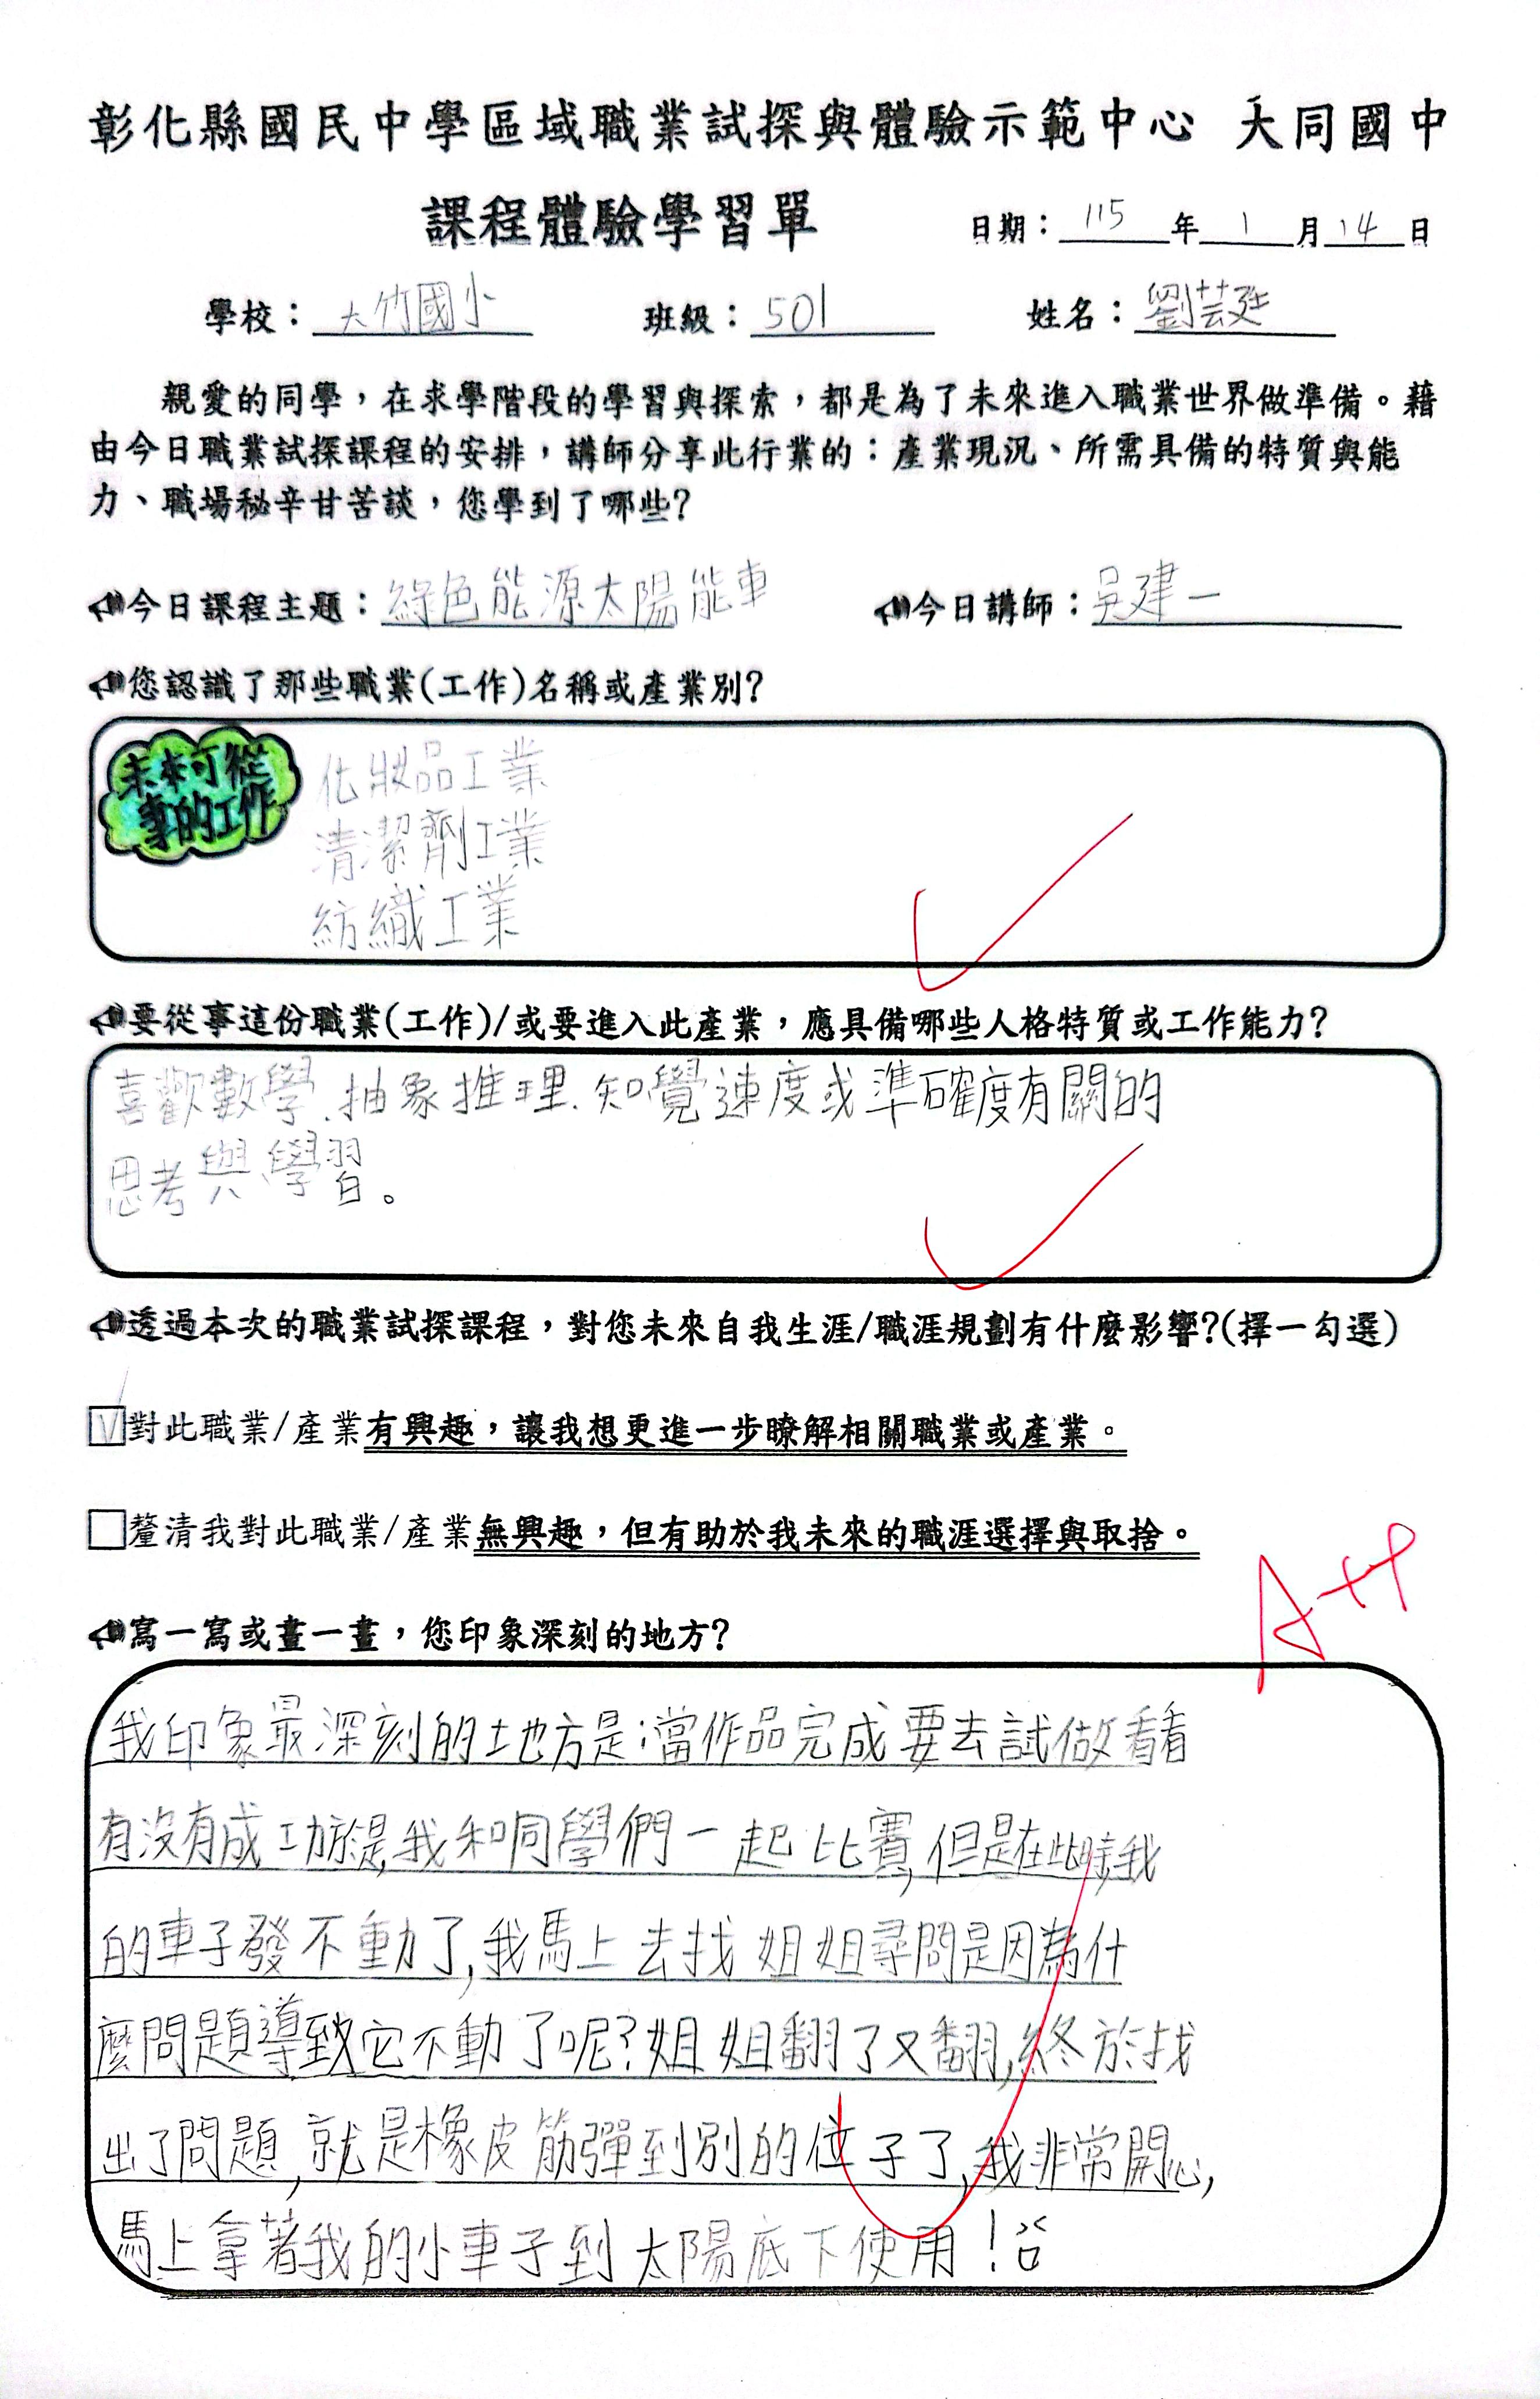 彰化縣國民中學區域職業試探與體驗示範中心 大同國中
課程體驗學習單 日期：115年1月14日
學校：大竹國小 班級：501 姓名：劉芸廷
親愛的同學，在求學階段的學習與探索，都是為了未來進入職業世界做準備。藉
由今日職業試探課程的安排，講師分享此行業的：產業現況、所需具備的特質與能
力、職場秘辛甘苦談，您學到了哪些?
今日課程主題：綠色能源太陽能車 今日講師：吳建一
您認識了那些職業(工作)名稱或產業別?
未來可從
事的工作
化妝品工業
清潔劑工業
紡織工業
要從事這份職業(工作)/或要進入此產業，應具備哪些人格特質或工作能力?
喜歡數學、抽象推理、知覺速度或準確度有關的
思考與學習。
透過本次的職業試探課程，對您未來自我生涯/職涯規劃有什麼影響?(擇一勾選)
☑對此職業/產業有興趣，讓我想更進一步瞭解相關職業或產業。
□釐清我對此職業/產業無興趣，但有助於我未來的職涯選擇與取捨。
A++
寫一寫或畫一畫，您印象深刻的地方?
我印象最深刻的地方是：當作品完成要去試做看看
有沒有成功於是，我和同學們一起比賽，但是在此時，我
的車子發不動了，我馬上去找姐姐尋問是因為什
麼問題導致它不動了呢？姐姐翻了又翻，終於找
出了問題，就是橡皮筋彈到別的位子了，我非常開心，
馬上拿著我的小車子到太陽底下使用！